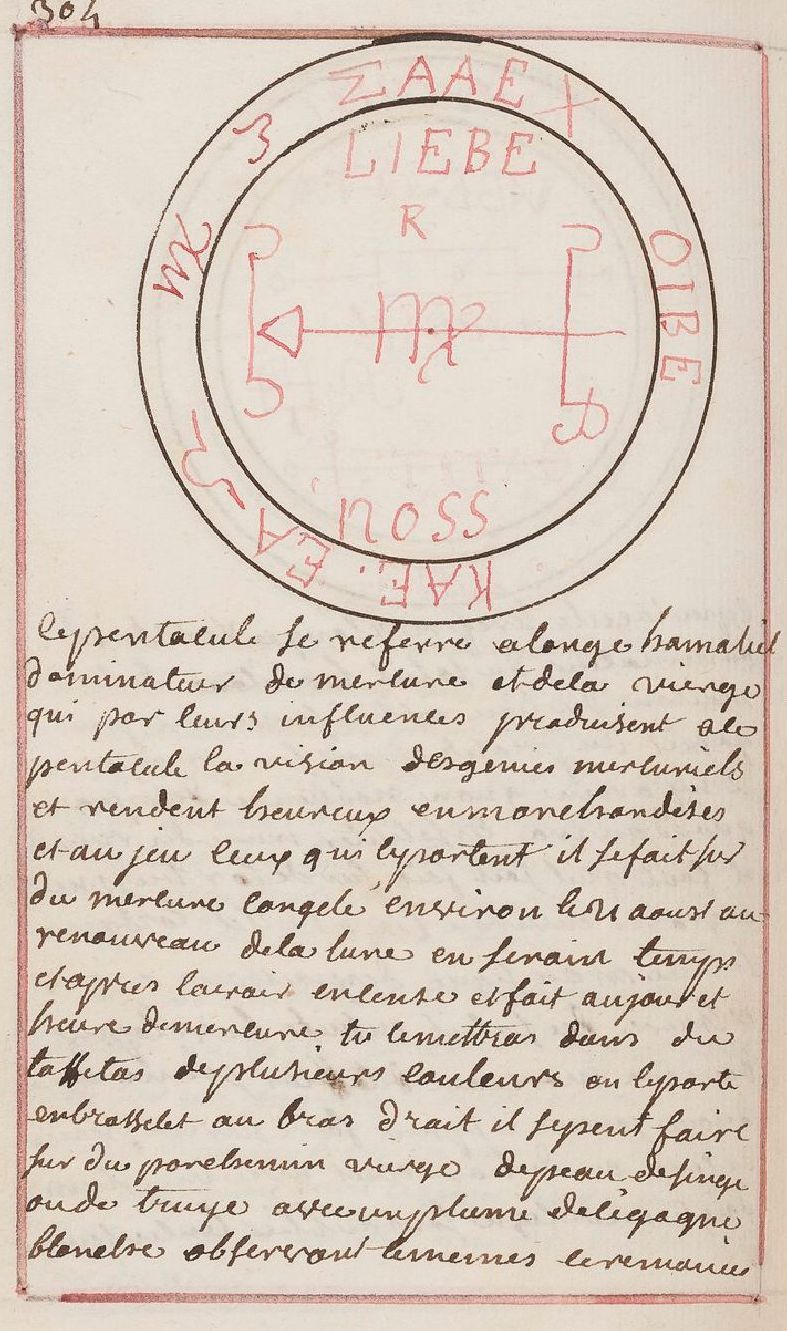 304
ΣAAE
LIEBE
R
OIBE
3
SSON
KAE. EA
cepentacule se referre alange hamaliel
dominateur de mercure et dela vierge
qui par leurs influences produisent ale
pentacule la vision desgenies mercuriels
et rendent heureux enmarchandises
et au jeu ceux qui leportent il sefait sur
du mercure congelé environ le 21 aoust au
renouveau dela lune en serain temps
etapres lavoir encense etfait aujour et
heure demercure tu lemettras dans du
taffetas deplusieurs couleurs on leporte
enbrasselet au bras droit il sepeut faire
sur du parchemin vierge depeau desinge
ou de truye avec un plume de cigogne
blanche observant lememes ceremonies